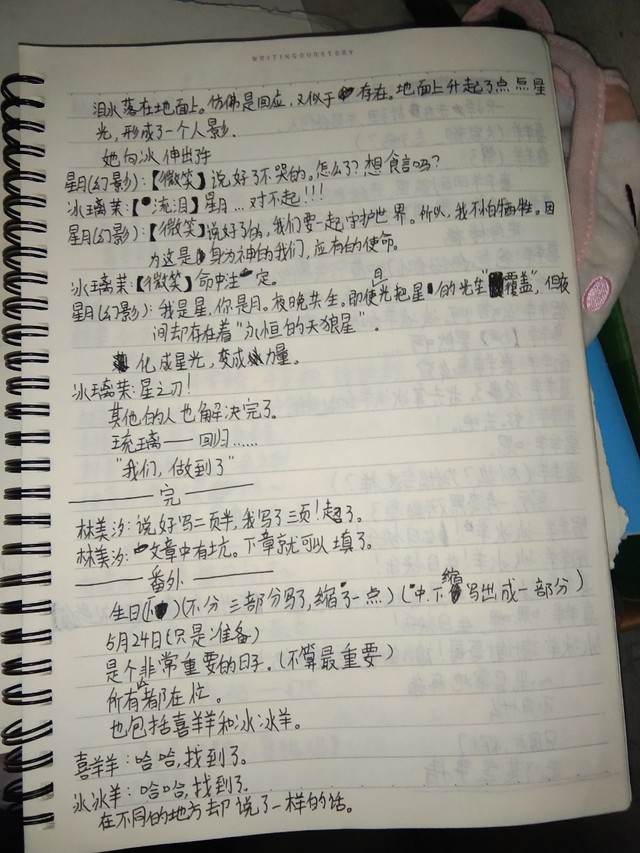 WRITING OUR STORY
泪水落在地面上。仿佛是回应，又似于存在。地面上升起了点点星
光，形成了一个人影。
她向冰伸出手
星月(幻影)：【微笑】说好了不哭的。怎么了？想食言吗？
冰璃茉：【流泪】星月…对不起!!!
星月(幻影)：【微笑】说好了的，我们要一起守护世界。所以，我不怕牺牲。因
为这是身为神的我们，应有的使命。
冰璃茉：【微笑】命中注定。
星月(幻影)：我是星，你是月。夜晚共生。即使日光把星的光生"覆盖"，但夜
间却存在着"永恒的天狼星"。
化成星光，变成力量。
冰璃茉：星之刃！
其他的人也解决完了。
琉璃——回归……
"我们，做到了"
——完——
林美汐：说好写二页半，我写了三页！超了。
林美汐：文章中有坑。下章就可以填了。
——番外——
生日(下)(不分三部分写了，缩了一点)(中.下缩写出成一部分)
5月24日(只是准备)
是个非常重要的日子。(不算最重要)
所有都在忙。
也包括喜羊羊和冰冰羊。
喜羊羊：哈哈，找到了。
冰冰羊：哈哈，找到了。
在不同的地方却说了一样的话。